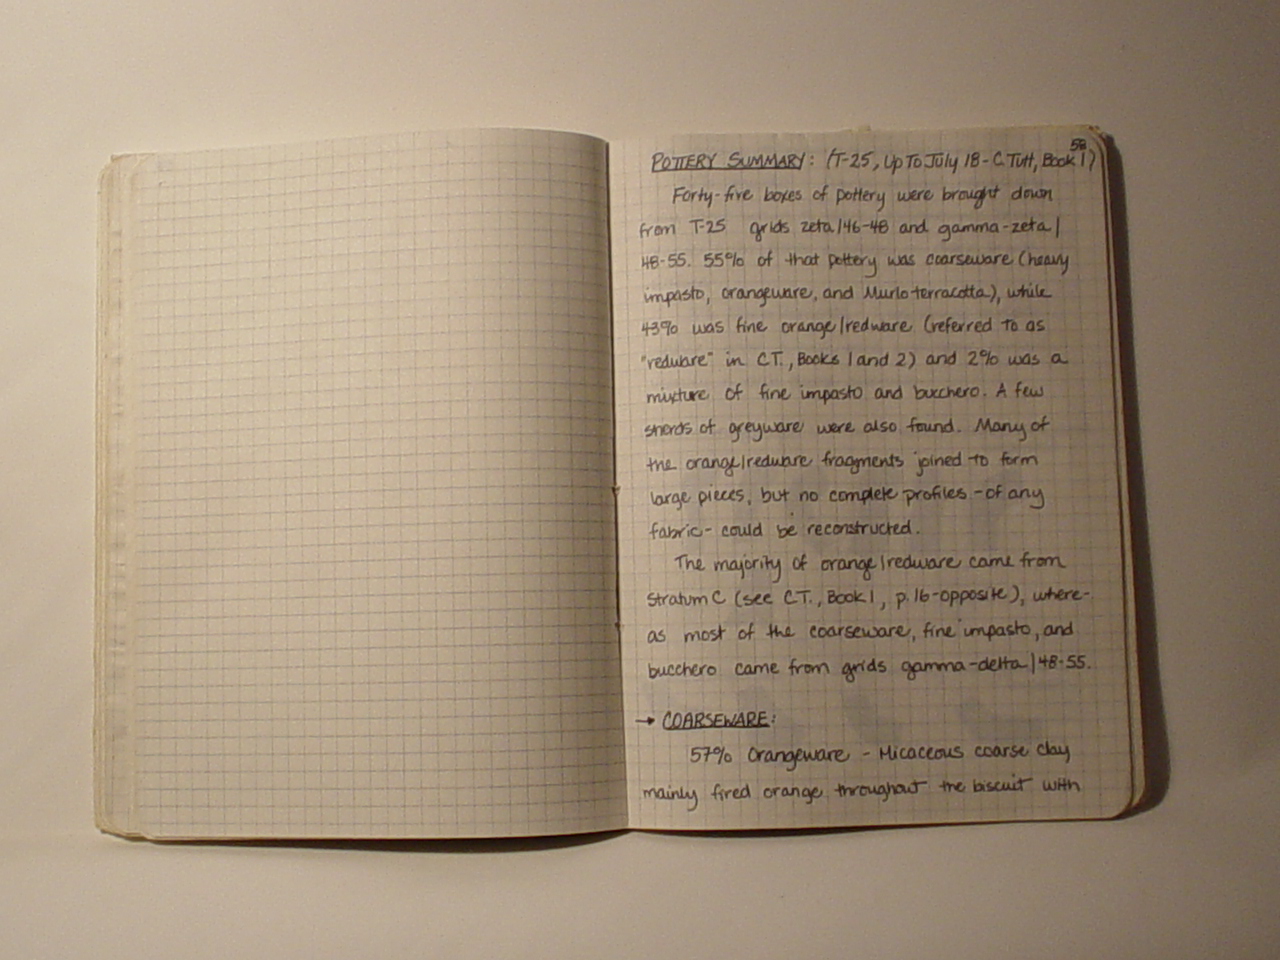 58
POTTERY SUMMARY: (T-25, Up To July 18 - C. Tutt, Book 1)
Forty-five boxes of pottery were brought down
from T-25 grids zeta/46-48 and gamma-zeta/
48-55. 55% of that pottery was coarseware (heavy
impasto, orangeware, and Murlo terracotta), while
43% was fine orange/redware (referred to as
"redware" in C.T., Books 1 and 2) and 2% was a
mixture of fine impasto and bucchero. A few
sherds of greyware were also found. Many of
the orange/redware fragments joined to form
large pieces, but no complete profiles - of any
fabric - could be reconstructed.
The majority of orange/redware came from
Stratum C (see C.T., Book 1, p. 16-opposite), where-
as most of the coarseware, fine impasto, and
bucchero came from grids gamma-delta/48-55.
→ COARSEWARE:
57% Orangeware - Micaceous coarse clay
mainly fired orange throughout the biscuit with